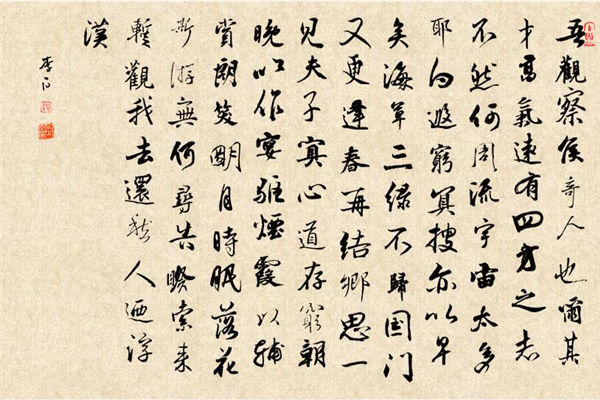 吾觀察侯奇人也爾其
才高氣遠有四方之志
不然何周流宇宙太多
耶白遐窮冥搜亦以早
矣海草三綠不歸國門
又更逢春再結鄉思一
見夫子冥心道存窮朝
晚以作宴駐煙霞以輔
賞朗笑明月時眠落花
斯游無何尋告睽索來
暫觀我去還愁人迺浮
漢
李白